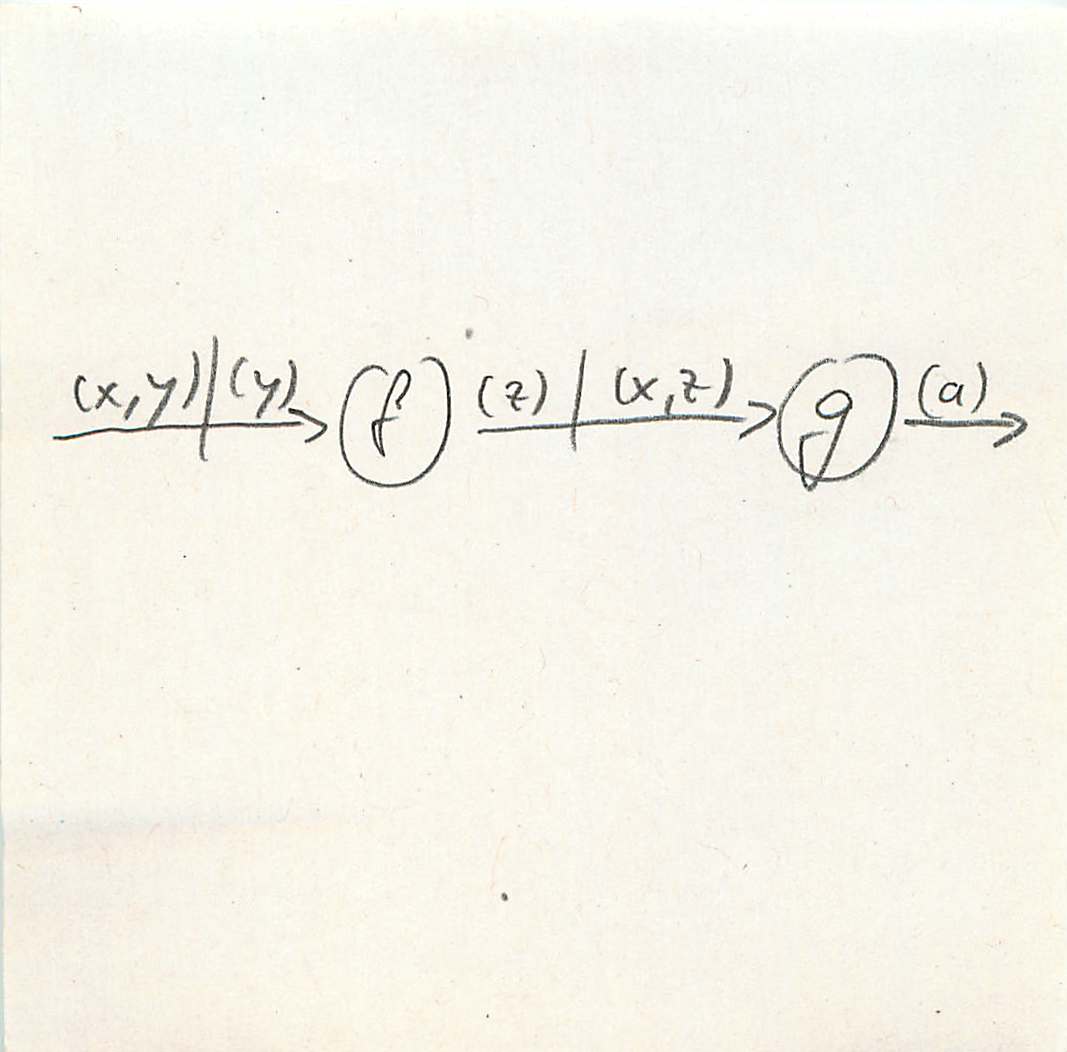 (x,y) | (y) f (z) | (x,z) g (a)